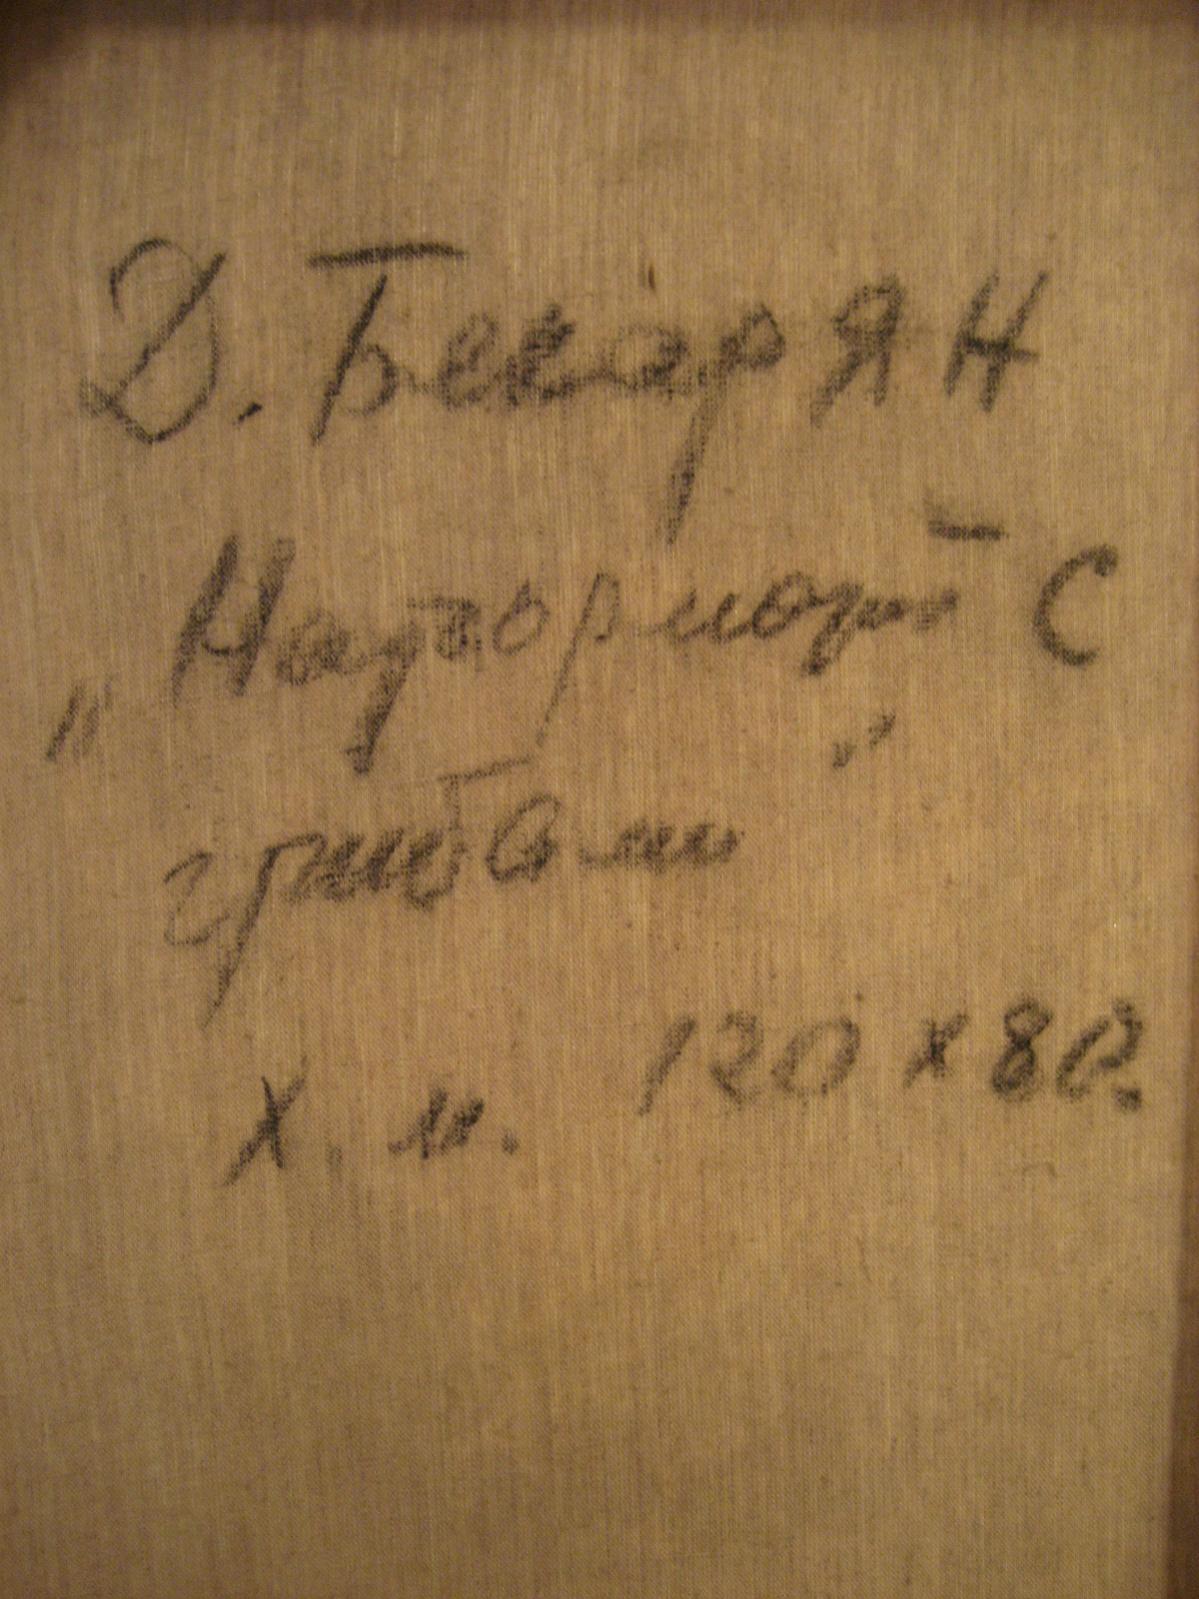 Д. Бекарян
„Натюрморт с
грибами"
х. м. 120 х 80.